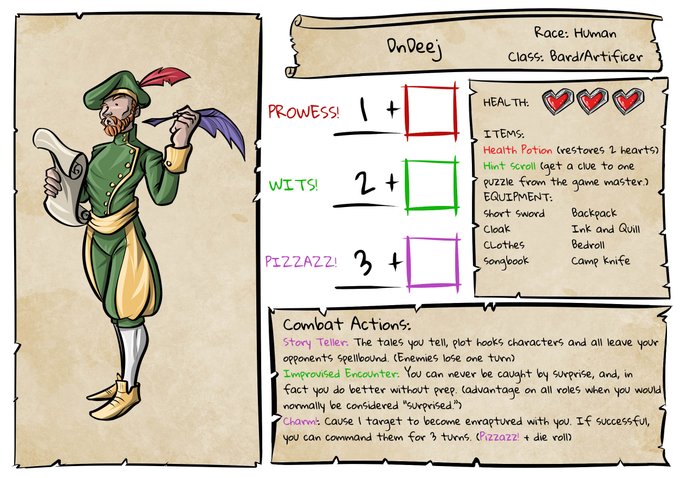 DnDeej
Race: Human
Class: Bard/Artificer
PROWESS! 1 +
WITS! 2 +
PIZZAZZ! 3 +
HEALTH:
ITEMS:
Health Potion (restores 2 hearts)
Hint Scroll (get a clue to one
puzzle from the game master.)
EQUIPMENT:
Short sword Backpack
Cloak Ink and Quill
Clothes Bedroll
Songbook Camp Knife
Combat Actions:
Story Teller: The tales you tell, plot hooks characters and all leave your
opponents spellbound. (Enemies lose one turn)
Improvised Encounter: You can never be caught by surprise, and, in
fact you do better without prep. (advantage on all roles when you would
normally be considered "surprised.")
Charm!: Cause 1 target to become enraptured with you. If successful,
you can command them for 3 turns. (Pizzazz! + die roll)